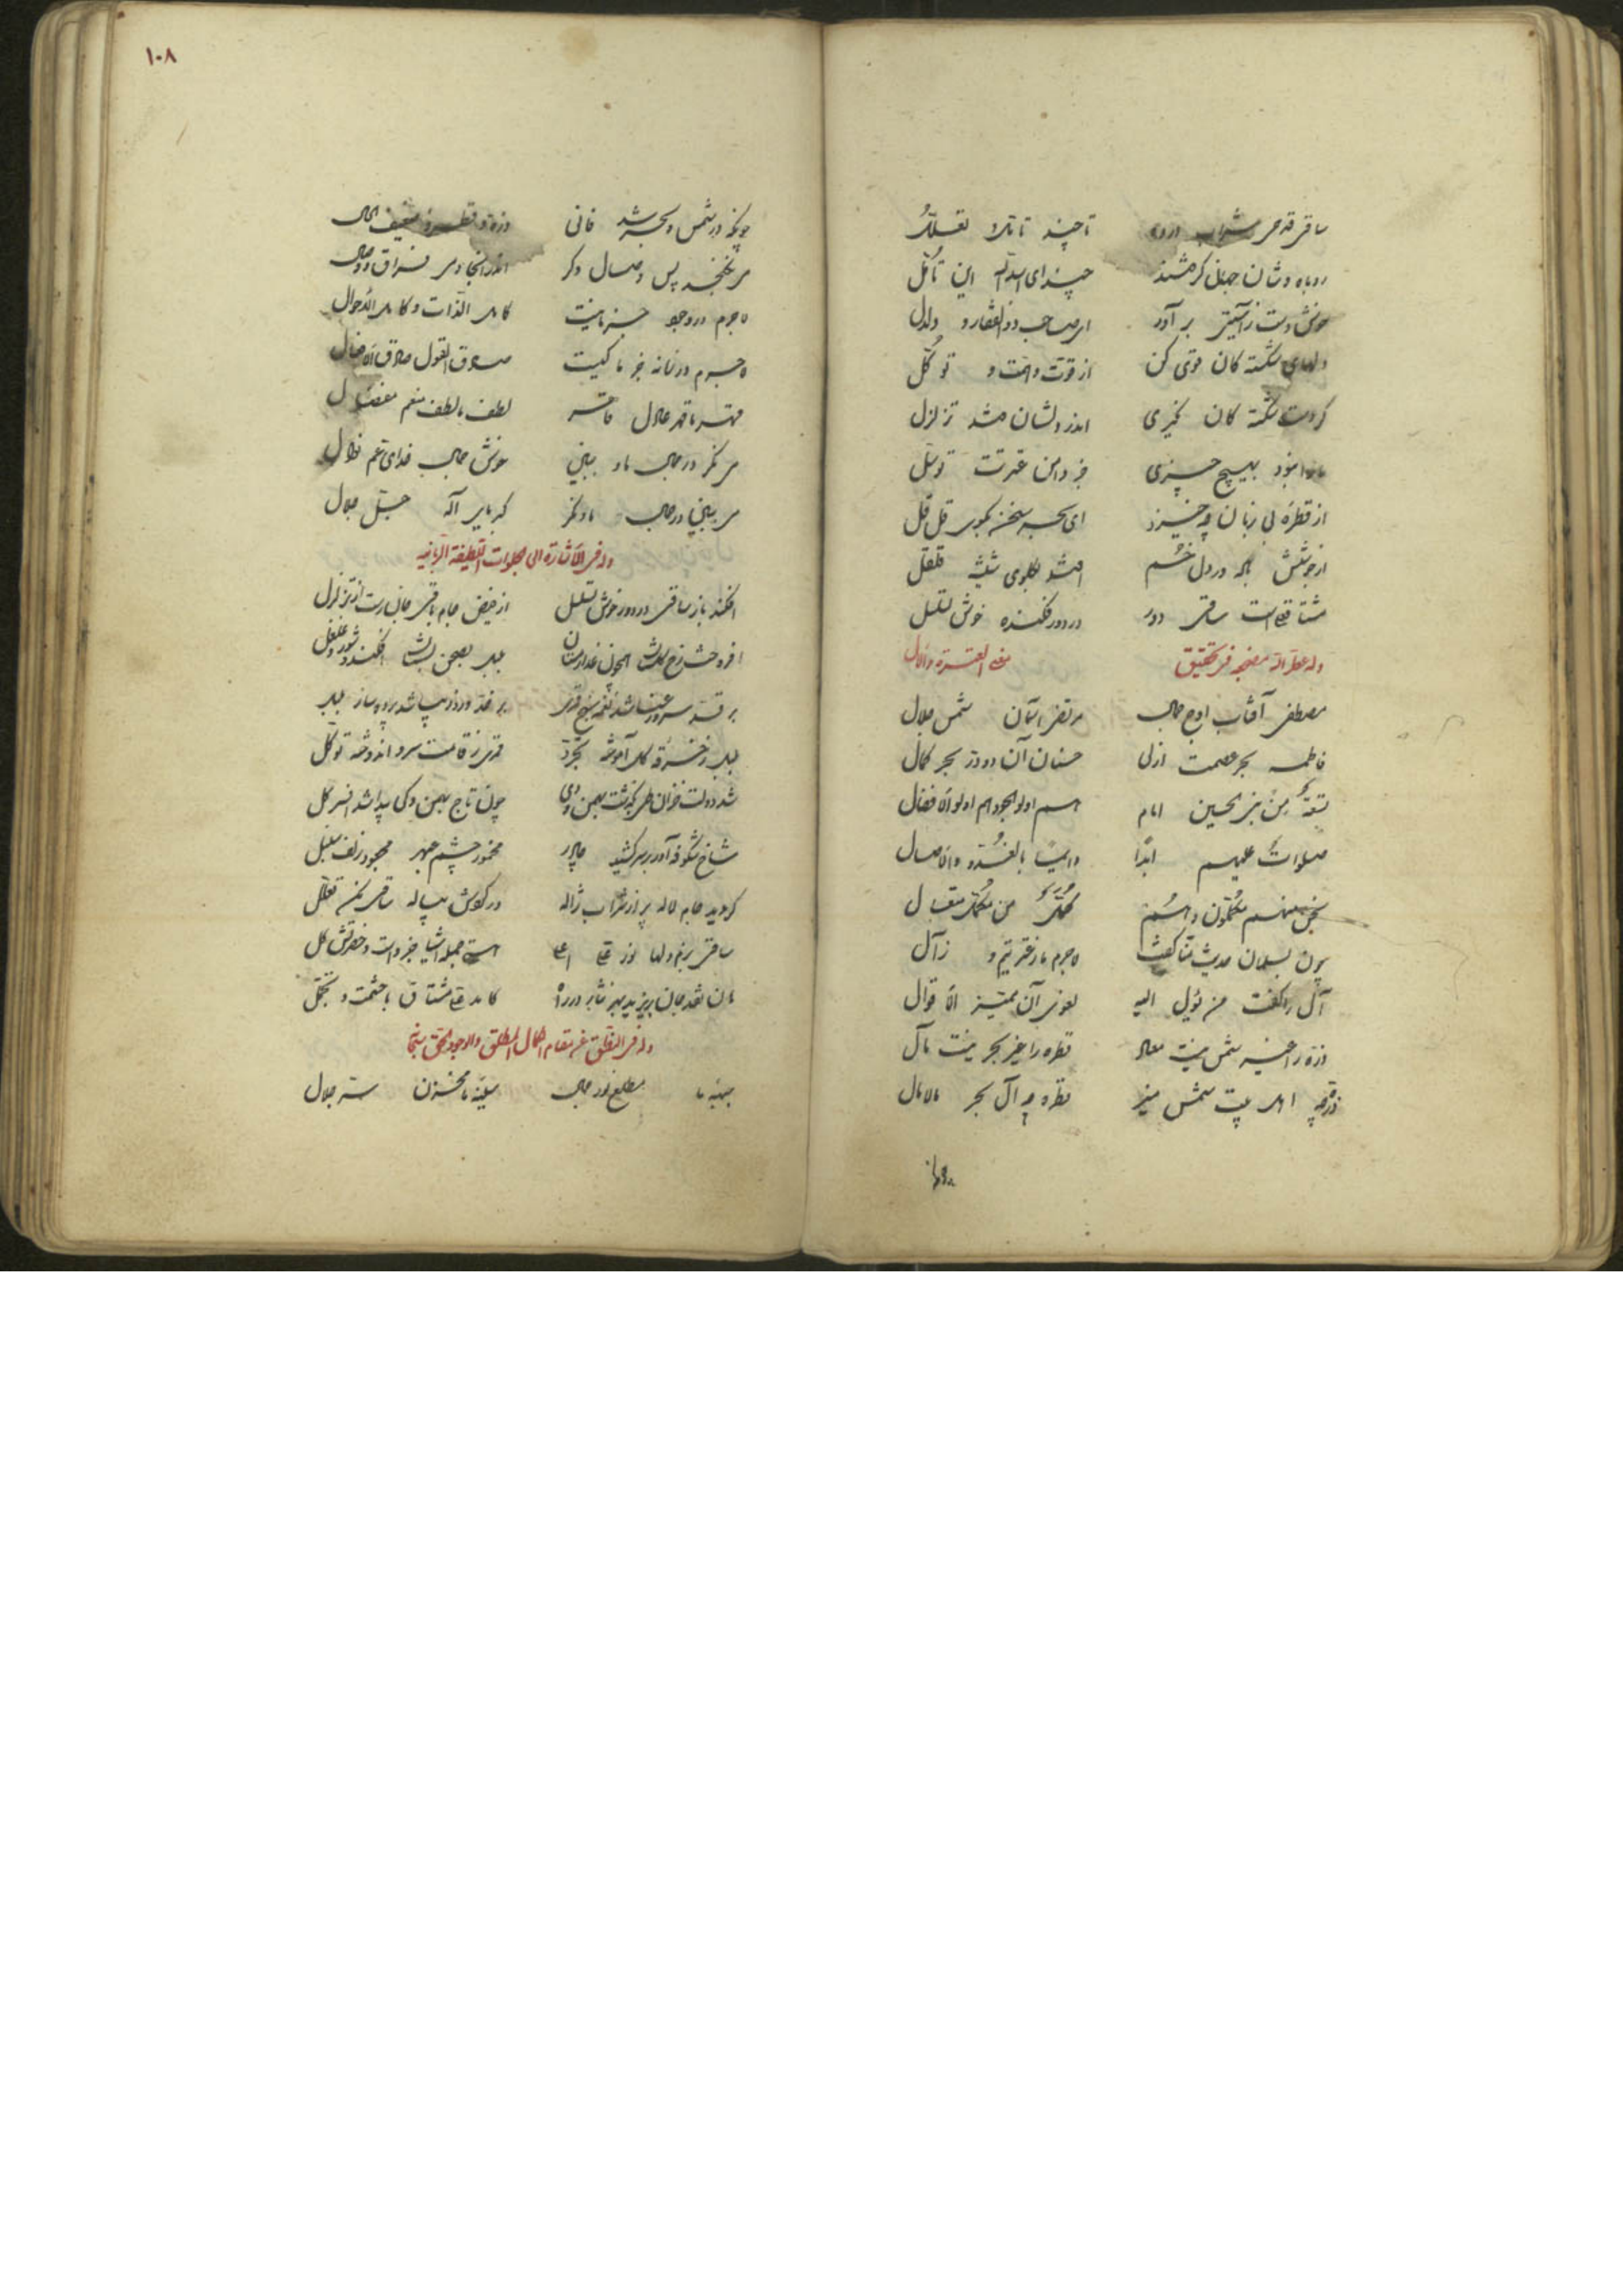 ساقی قدحی شراب در ده تا چند تأنی و تعلل
روباه وشان جهان گرفتند چند ای اسد الله این تأمل
خوش دست ز آستین بر آور ای صاحب ذوالفقار و دلدل
دلهای شکسته گان قوی کن از قوت و همت و توکل
کز دست شکسته گان نخیزی اندر دلشان فتد تزلزل
ما را نبود بهیچ چیزی جز دامن عترتت توسل
از قطره بی زبان چه خیزد ای بحر سخن بگوی قل قل
از جوشش باده در دل خم افتد بگلوی شیشه قلقل
مشتاقعلی است ساقی دور در دور فکنده خوش تسلسل
وله عطر الله مضجعه فی تحقیق معنی العترة والآل
مصطفی آفتاب اوج جمال مرتضی آسمان شمس جلال
فاطمه بحر عصمت ازلی حسنان آن دو در بحر کمال
تسعة من بنی الحسین امام هم اولوا الجود هم اولوا الافضال
صلوات علیهم ابدا دائما بالغدو والآصال
نحن منهم مکملون واسم من مکمل متعال
چون بسلمان حدیث منا گفت لاجرم ما ز عترتیم و ز آل
آل را گفت من یؤل الیه لغوی آن ممیز الاقوال
ذره را غیر شمس نیست معاد قطره را غیر بحر نیست مآل
ذره چه اهل بیت شمس منیر قطره چه آل بحر مالامال
چونکه در شمس و بحر شد فانی ذره و قطره ضعیف الحال
می نگنجد پس وصال دگر اندر اینجا دمی فراق و وصال
لاجرم در وجود جز ما نیست کامل الذات و کامل الاحوال
لاجرم در زمانه جز ما کیست صادق القول صادق الافعال
قهر ما قهر عادل قاهر لطف ما لطف منعم مفضال
می نگر در جمال ما و ببین خوش جمال خدای عم نوال
می ببین در جلال ما و نگر کبریای اله جل جلال
وله فی الاشارة الی تجلیات اللطیفة الربانیه
افکند باز ساقی در دور خوش تسلسل از فیض جام باقی جان رست از تزلزل
افروخت رخ گلستان همچون عذار مستان بلبل بصحن بستان افکند شور و غلغل
بر قد سرو رعنا شد نغمه سنج قمری بر خد ورد زیبا شد پرده ساز بلبل
بلبل ز خرقه گل آموخته تجرد قمری ز قامت سرو اندوخته توکل
شد دولت خزان طی بگذشت بهمن و دی چون تاج بهمن و کی پیدا شد افسر گل
شاخ شکوفه آور بر سر کشید چادر مخمور چشم عبهر مجعود زلف سنبل
گردید جام لاله پر از شراب ژاله در گوش پیاله ساقی مکن تعلل
ساقی بزم دلها نور علی اعلی است جمله اشیا جزو است و حضرتش کل
هان نقد جان بریزید بهر نثار در راه کامد علی مشتاق با حشمت و تجمل
وله فی النطق عن مقام الکمال المطلق والوجود الحق
جبهه ما مطلع نور جمال سینه ما مخزن سر جلال
۱۰۸